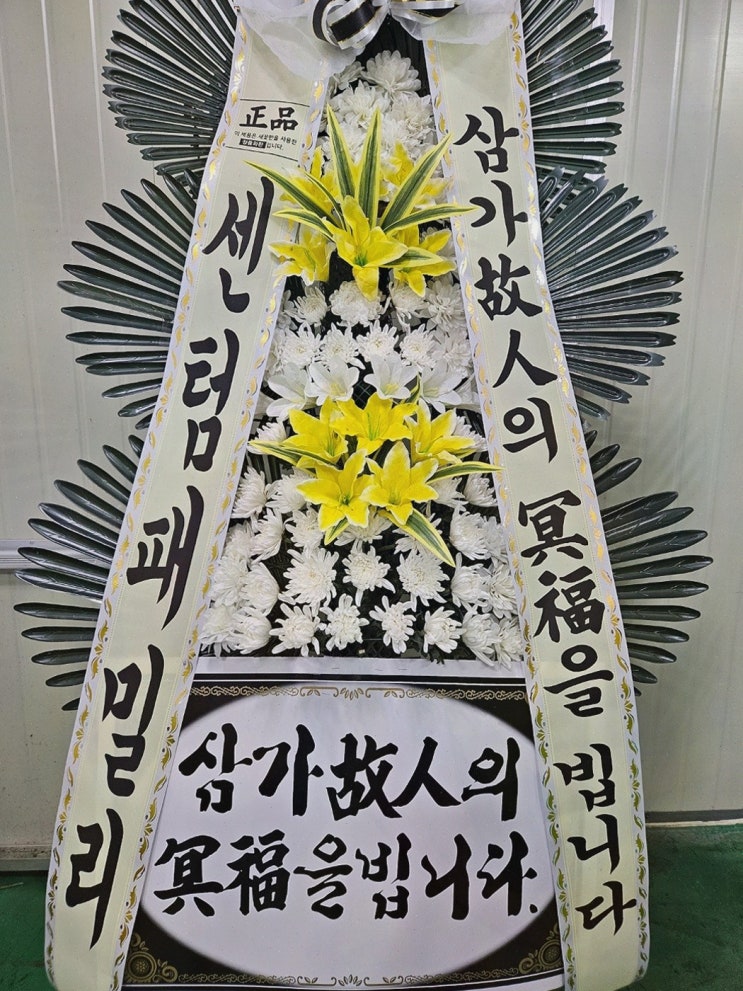 正品
이 제품은 새꽃만을 사용한
정품화환입니다.
센텀패밀리
삼가故人의 冥福을 빕니다
삼가故人의
冥福을빕니다.